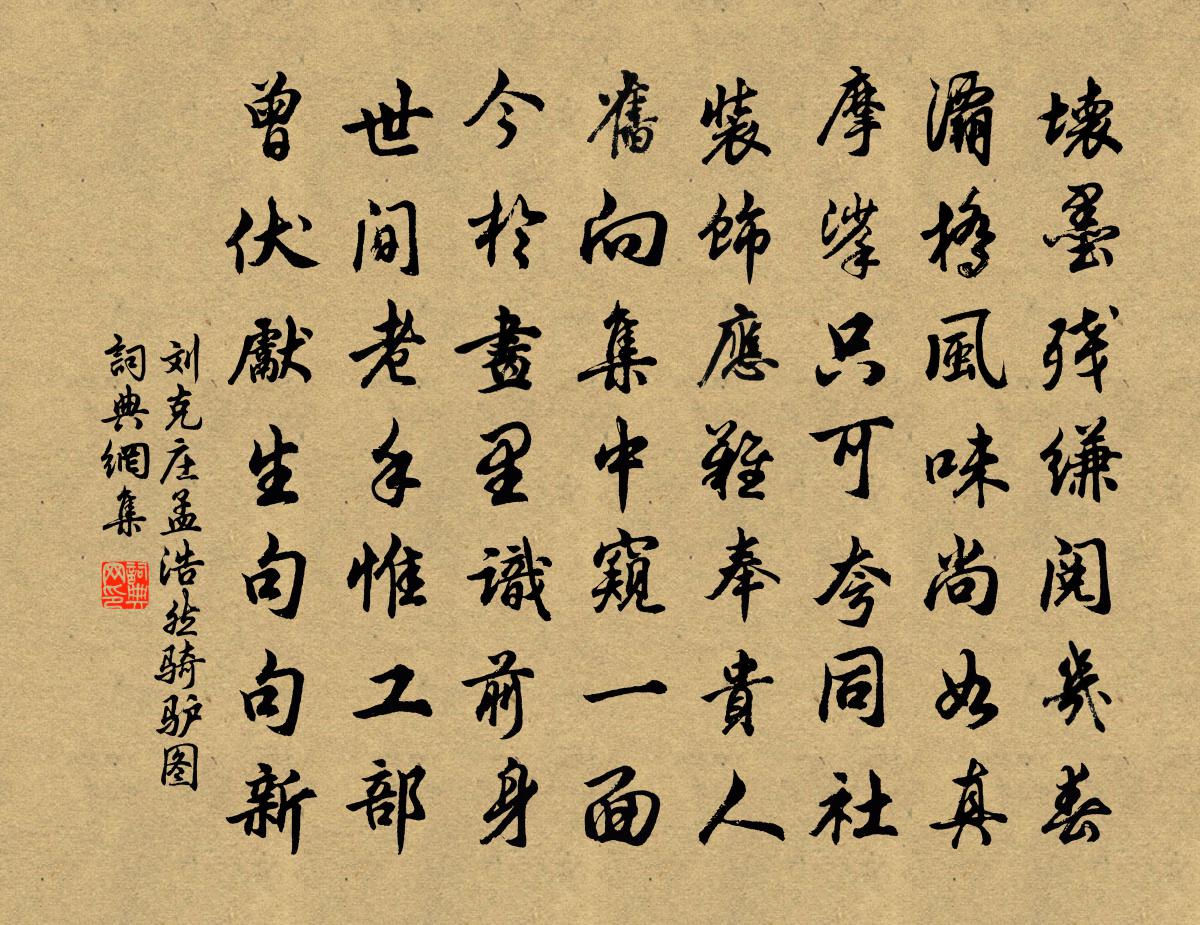 壞墨残縑閱幾春
灞橋風味尚如真
摩挲只可夸同社
裝飾應難奉貴人
舊向集中窺一面
今於畫里識前身
世间老手惟工部
曾伏獻生句句新
刘克庄孟浩然骑驴图
詞典網集
詞典网印